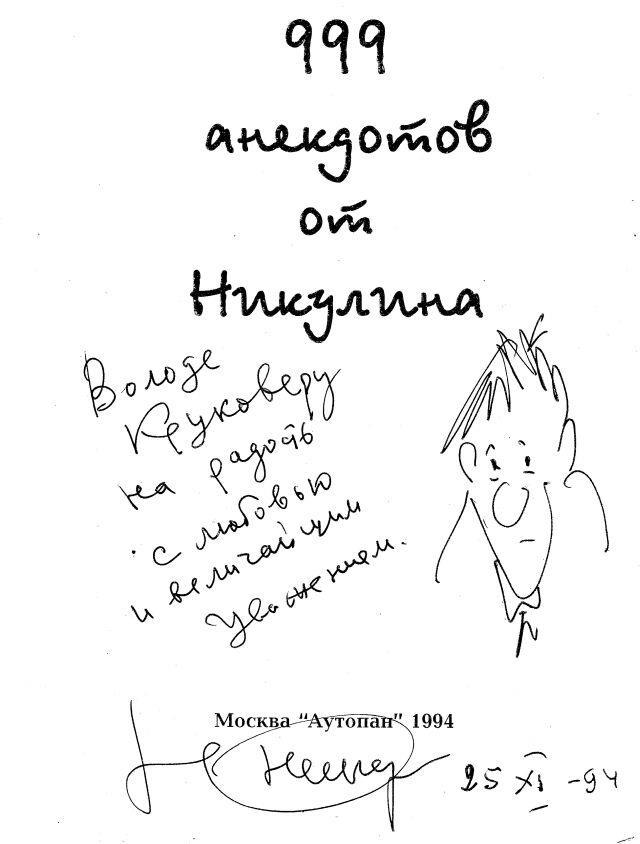 999
анекдотов
от
Никулина
Володе
Круковеру
на радость
с любовью
и величайшим
уважением.
Москва "Аутопан" 1994
25 XI -94